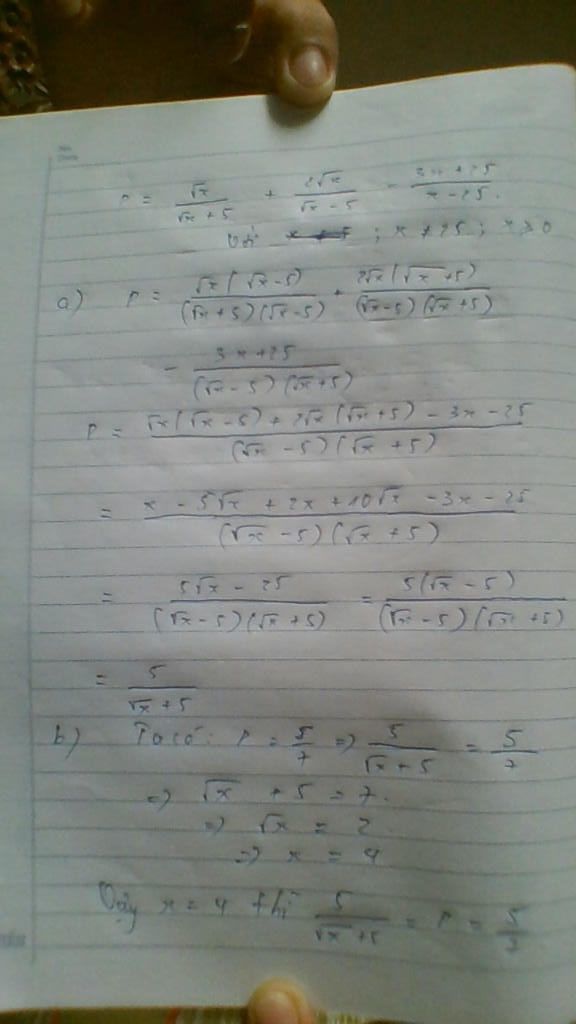 P = √x/(√x + 5) + 2√x/(√x - 5) - (3x + 25)/(x - 25).
Với ; x ≠ 25 ; x ≥ 0
a) P = √x(√x - 5)/((√x + 5)(√x - 5)) + 2√x(√x + 5)/((√x - 5)(√x + 5))
- (3x + 25)/((√x - 5)(√x + 5))
P = (√x(√x - 5) + 2√x(√x + 5) - 3x - 25)/((√x - 5)(√x + 5))
= (x - 5√x + 2x + 10√x - 3x - 25)/((√x - 5)(√x + 5))
= (5√x - 25)/((√x - 5)(√x + 5)) = 5(√x - 5)/((√x - 5)(√x + 5))
= 5/(√x + 5)
b) Ta có: P = 5/7 => 5/(√x + 5) = 5/7
=> √x + 5 = 7.
=> √x = 2
=> x = 4
Vậy x = 4 thì 5/(√x + 5) = P = 5/7